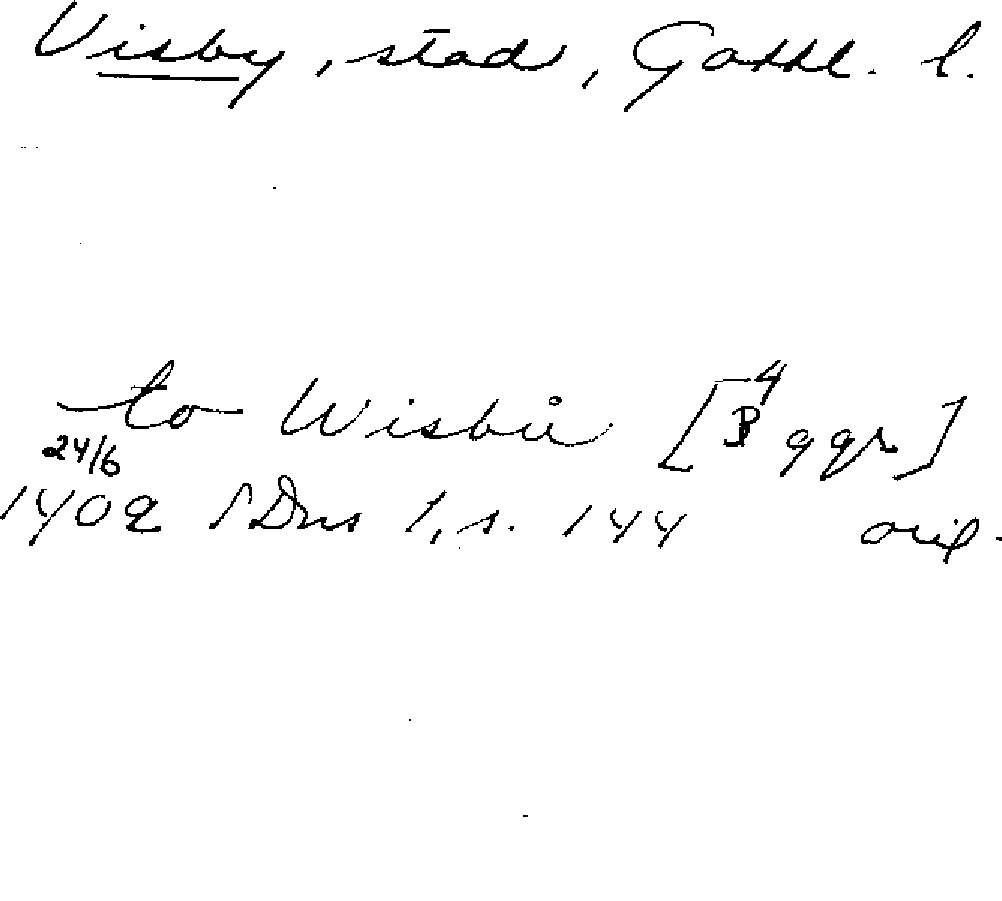 Visby, stad, Gottl. l.
to Wisbů [4 ggr]
24/6
1402 SDns 1, s. 144 orig.